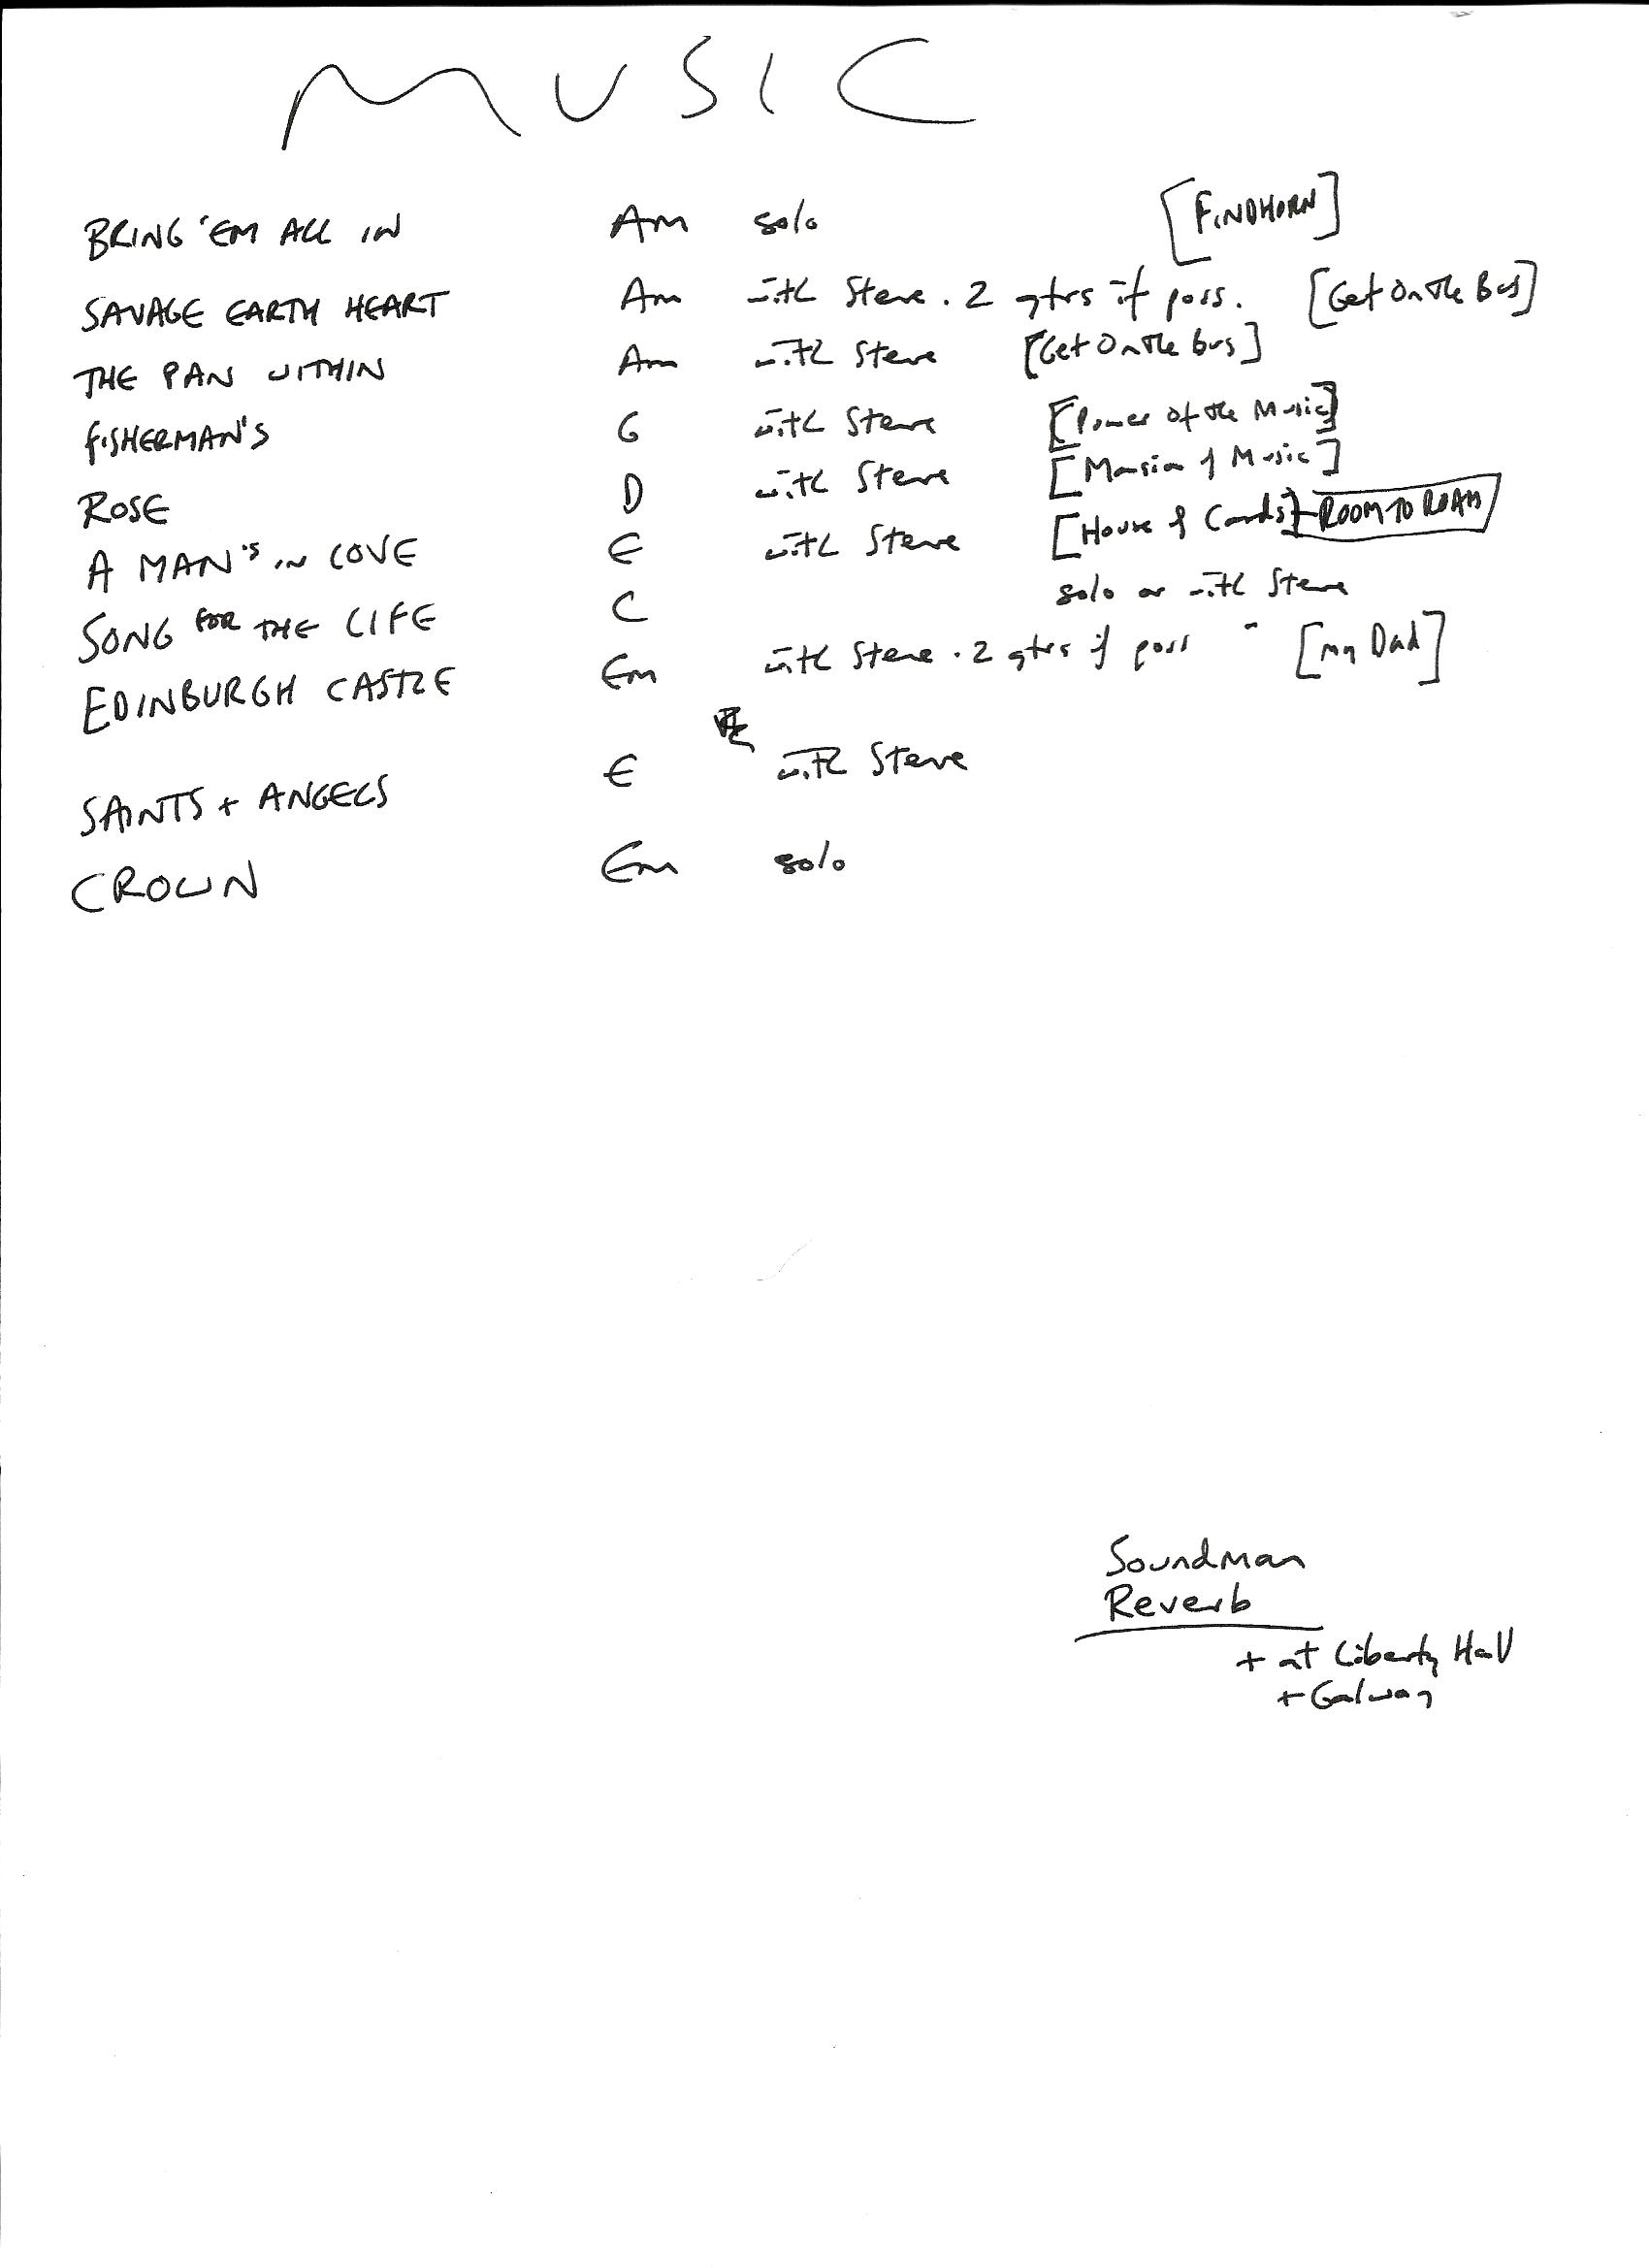 MUSIC
BRING 'EM ALL IN Am solo [FINDHORN]
SAVAGE EARTH HEART Am with Steve. 2 gtrs if poss. [Get On The Bus]
THE PAN WITHIN Am with Steve [Get On The Bus]
FISHERMAN'S G with Steve [Power of the Music]
ROSE D with Steve [Mansion of Music]
A MAN'S IN LOVE E with Steve [House of Cards] ROOM TO ROAM
SONG FOR THE LIFE C solo or with Steve
EDINBURGH CASTLE Em with Steve. 2 gtrs if poss - [my Dad]
SAINTS + ANGELS E with Steve
CROWN Em solo
Soundman
Reverb
+ at Liberty Hall
+ Galway